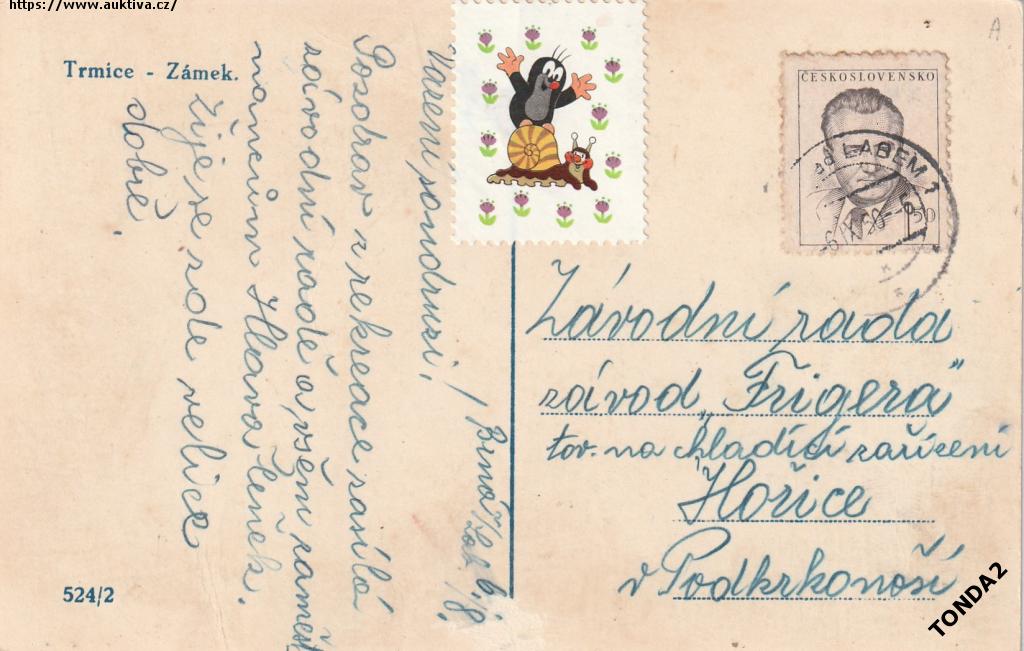 https://www.auktiva.cz/
A
Trmice - Zámek.
ČESKOSLOVENSKO
LABEM 1
1·50
Vážení soudruzi!
Pozdrav z rekreace zasílá
závodní radě a všem zaměst
nancům Hlava Čeněk.
Žije se zde velice
dobře.
6./8.
Závodní rada
závod „Frigera"
tov. na chladící zařízení
Hořice
v Podkrkonoší
524/2
TONDA2